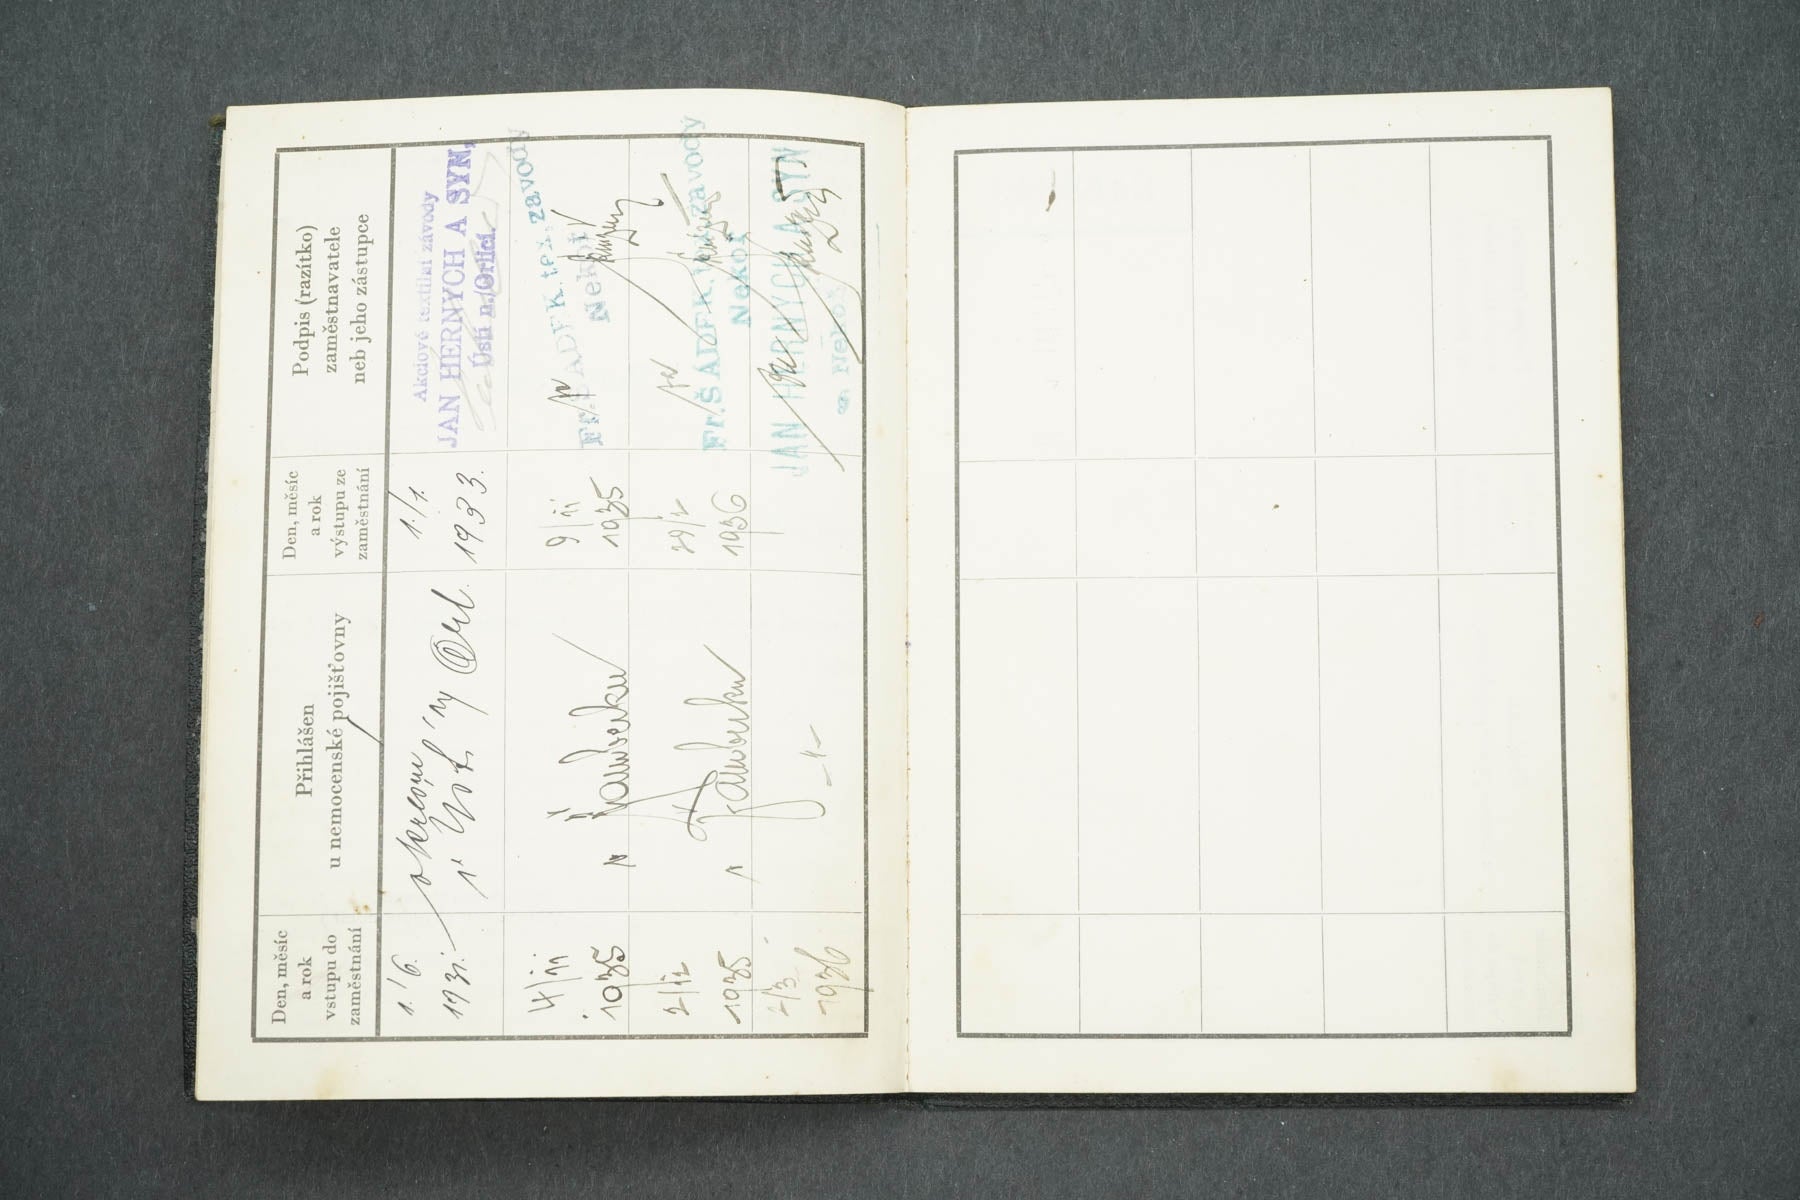 Den, měsíc
a rok
vstupu do
zaměstnání
Přihlášen
u nemocenské pojišťovny
Den, měsíc
a rok
výstupu ze
zaměstnání
Podpis (razítko)
zaměstnavatele
neb jeho zástupce
1./6.
1931.
okresní
v Úst. n/ Orl.
1./1.
1933.
Akciové textilní závody
JAN HERNYCH A SYN,
Ústí n. Orlicí.
4/11
1935
v Žamberku
9/11
1935
Fr. ŠÁDEK, tex. závody
Nekoř
2/12
1935
v Žamberku
29/2
1936
Fr. ŠÁDEK, tex. závody
Nekoř
2/3
1936
-"-
JAN HERNYCH A SYN